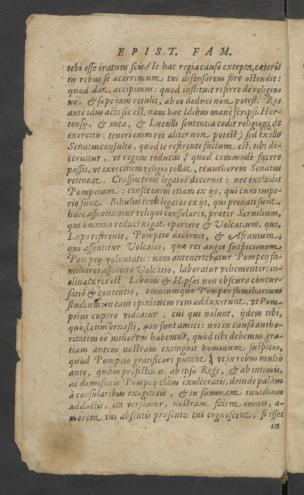 EPIST. FAM.
tibi esse iratum scit. Is hac regia causa excepta, ceteris
in rebus se acerrimum tui defensorem fore ostendit:
quod dat, accipimus: quod instituit referre de religio-
ne, & sæpe iam retulit, ab eo deduci non potest. Res
ante idus acta sic est, nam hæc Idibus mane scripsi. Hor-
tensij, & mea, & Luculli sententia cedit religioni de
exercitu: teneri enim res aliter non potest, sed ex illo
Senatusconsulto, quod te referente factum est, tibi de-
cernitur, vt regem reducas, quod commode facere
possis, vt exercitum religio tollat, te auctorem Senatus
retineat. Crassus treis legatos decernit: nec excludit
Pompeium: censet enim etiam ex ijs, qui cum impe-
rio sunt. Bibulus treis legatos ex ijs, qui priuati sunt.
huic assentiuntur reliqui consulares, præter Seruilium,
qui omnino reduci negat oportere & Volcatium, qui,
Lupo referente, Pompeio decernit, & Afranium,
qui assentitur Volcatio, quæ res auget suspicionem
Pompeij voluntatis: nam antenertebatur Pompeij fa-
miliares assentire Volcatio, laboratur vehementer: in-
clinata res est Libonis & Hypsæi non obscura concur-
satio & contentio, omniumque Pompeij familiarium
studium in eam opinionem rem adduxerunt, vt Pom-
peius cupere videatur, cui qui nolunt, ijdem tibi,
quod eum ornasti, non sunt amici: nos in causa autho-
ritatem eo minorem habemus, quod tibi debemus gra-
tiam autem nostram extinguit hominum suspicio,
quod Pompeio gratificari putant, vt in rebus multo
ante, quàm profectus es, ab ipso Rege, & ab intimis,
ac domesticis Pompeij clam exulceratis, deinde palam
à consularibus exagitatis, & in summam inuidiam
adductis, ita versamur, nostram fidem omnes, a-
morem tui absentis præsentes tui cognoscent, si esset
in